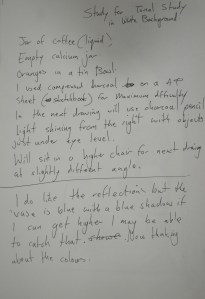 Study for Tonal Study
in White Background
Jar of coffee (liquid)
Empty calcium jar
Oranges in a tin Bowl
I used compressed charcoal on a A4
sheet (sketchbook) for maximum difficulty
In the next drawing will use charcoal pencil
Light shining from the right with objects
just under eye level.
Will sit in a higher chair for next drawing
at slightly different angle.
I do like the reflections but the
vase is blue with a blue shadow if
I can get higher I may be able
to catch that. Now thinking
about the colours.